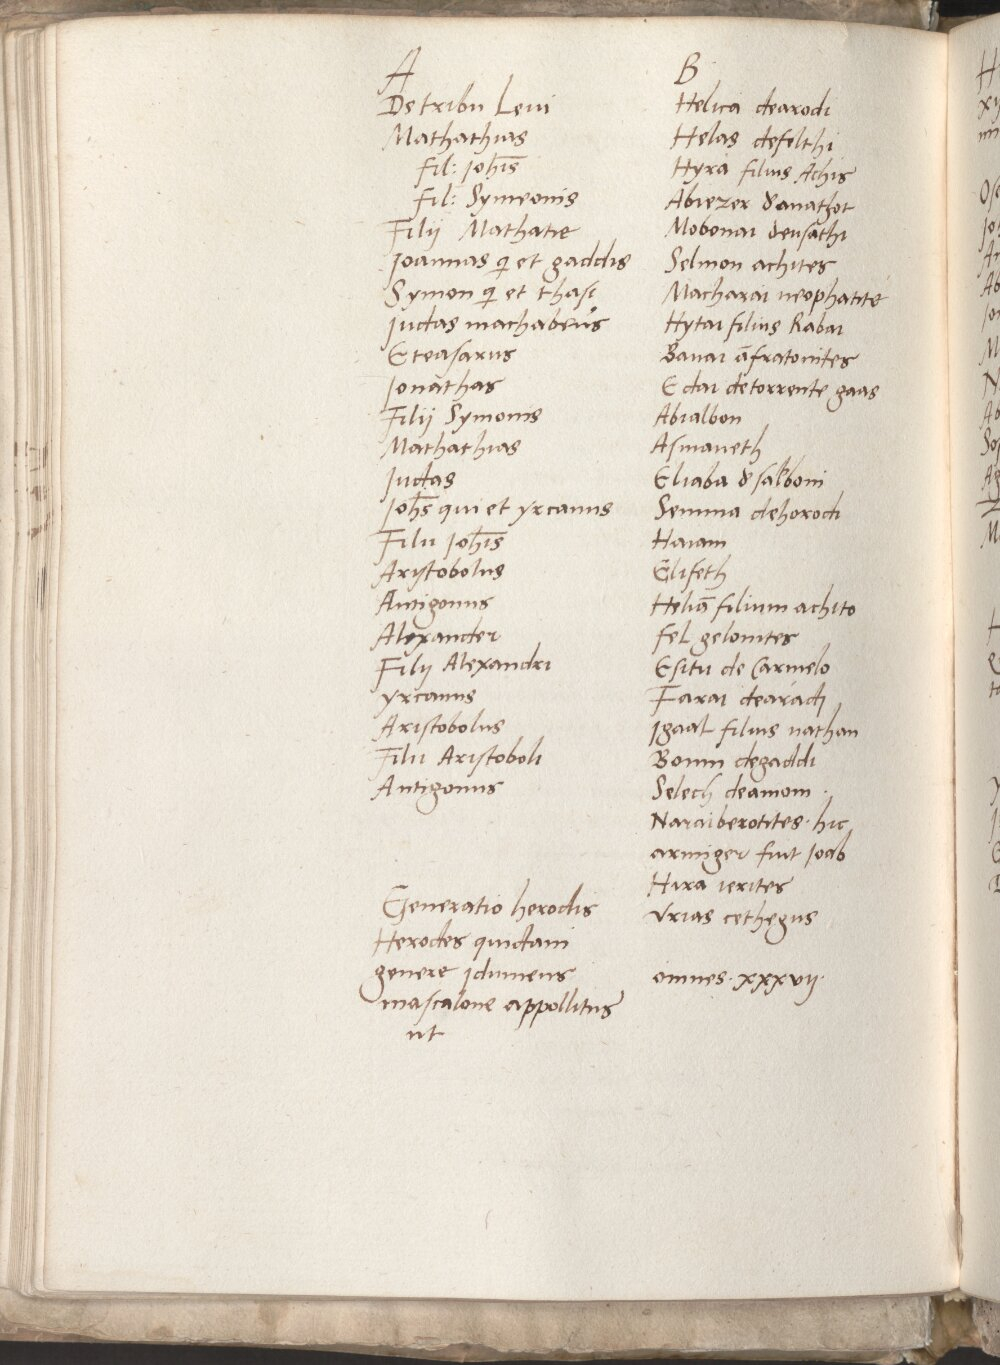 A
De tribu Leui
Mathathias
fil: Joh̅is
fil: Symeonis
Filij Mathatie
Joannas q et gaddis
Symon q et thasi
Judas machabeus
Eteasarus
Jonathas
Filij Symonis
Mathathias
Judas
Joh̅s qui et yrcanus
Filii Joh̅is
Aristobolus
Antigonus
Alexander
Filij Alexandri
yrcanus
Aristobolus
Filii Aristoboli
Antigonus
Generatio herodis
Herodes quidam
genere Idumeus
mascalone appollitus
ut
B
Helica dearodi
Helas defelthi
Hyra filius Achis
Abiezer d'anathot
Mobonai deusathi
Selmon achites
Macharai neophatite
Hytai filius Rabai
Banai a̅fratonites
Edai detorrente gaas
Abialbon
Asmaueth
Eliaba d' salboni
Semma dehorodi
Haiam
Elifeth
Helia̅ filium achito
fel gelonites
Esitu de Carmelo
Farai dearadj
Igaal filius nathan
Bonni degaddi
Selech deamom
Naraiberotites. hic
armiger fuit Joab
Hira ierites
Vrias cethegus
omnes. xxxvij.